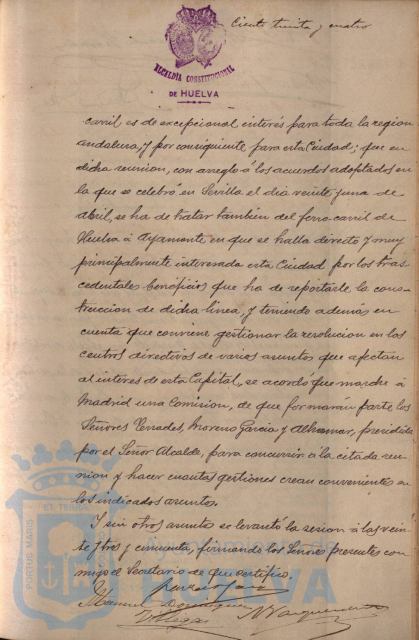 Ciento treinta y cuatro
ALCALDIA CONSTITUCIONAL
DE HUELVA
carril es de excepcional interés para toda la region
andaluza, y por consiguiente para esta Ciudad; que en
dicha reunion, con arreglo á los acuerdos adoptados en
la que se celebró en Sevilla el dia veinte y una de
abril, se ha de tratar tambien del ferro-carril de
Huelva á Ayamonte en que se halla directo y muy
principalmente interesada esta Ciudad por los tras-
cedentales beneficios que ha de reportarle la cons-
truccion de dicha linea, y teniendo además en
cuenta que conviene gestionar la resolucion en los
centros directivos de varios asuntos que afectan
al interes de esta Capital, se acordó que marche á
Madrid una Comision, de que formarán parte los
Señores Cerrades, Moreno Garcia y Alhamar, presidida
por el Señor Alcalde, para concurrir á la citada reu-
nion y hacer cuantas gestiones crean convenientes en
los indicados asuntos.
Y sin otros asuntos se levantó la sesion á las vein-
te y tres y cincuenta, firmando los Señores presentes con-
migo el Secretario de que certifico.
Manuel Dominguez
Villegas
N Vazquez
PORTUS MARIS
ET TERRAE
Ayuntamiento de
HUELVA